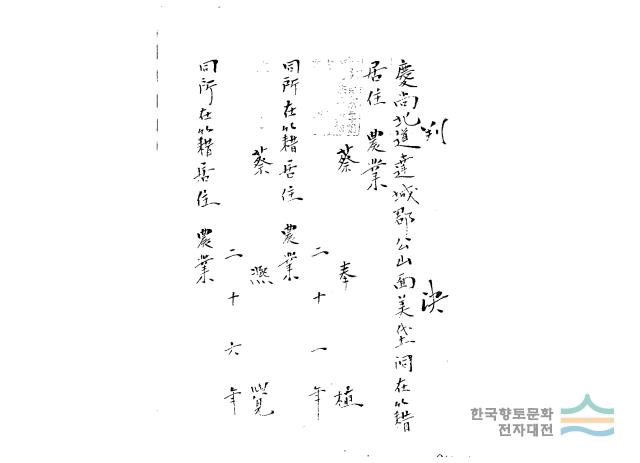 判決
慶尚北道達城郡公山面美垈洞在籍
居住 農業
蔡奉植
二十一年
同所在籍居住 農業
蔡㷩覺
二十六年
同所在籍居住 農業
한국향토문화
전자대전